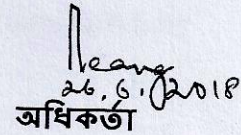 26.6.2018
অধিকর্তা